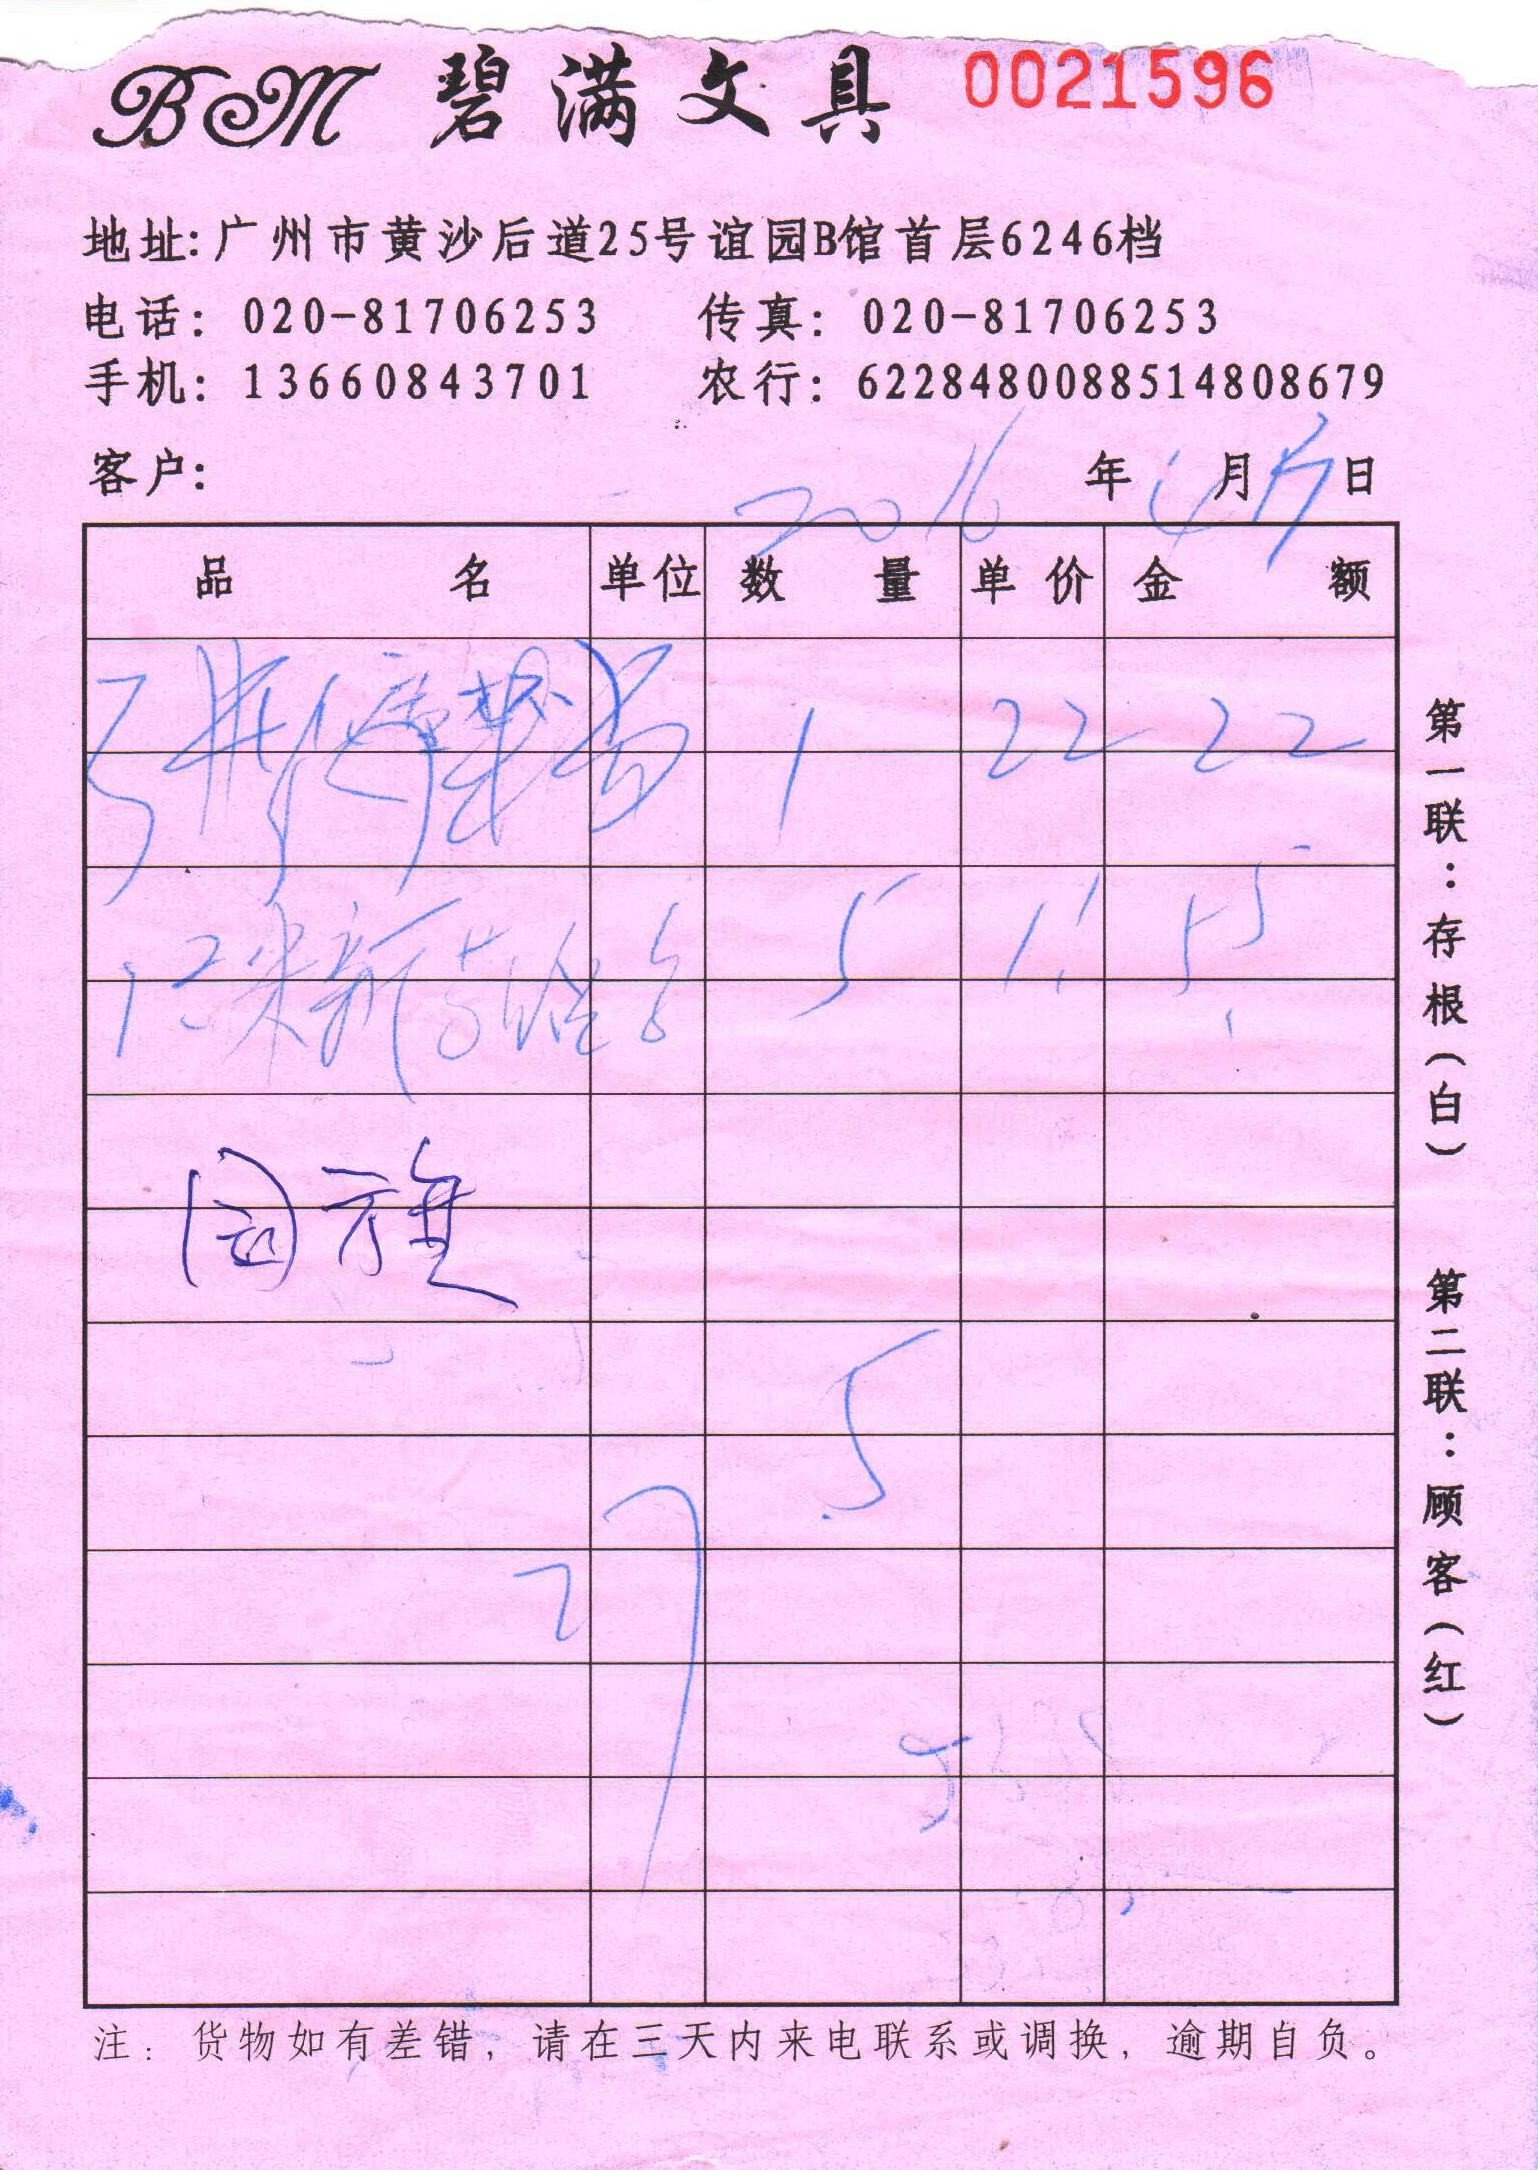 BM 碧满文具 0021596
地址:广州市黄沙后道25号谊园B馆首层6246档
电话: 020-81706253 传真: 020-81706253
手机: 13660843701 农行: 6228480088514808679
客户: 2016年 月 日
品名 单位 数量 单价 金额
1 22 22
12米新 5 1.1 5.5
国旗
5
27
第一联:存根(白) 第二联:顾客(红)
注: 货物如有差错, 请在三天内来电联系或调换, 逾期自负。